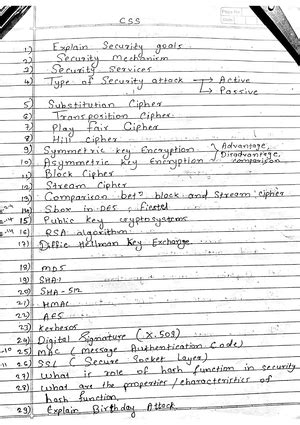 CSS
1) Explain Security goals
2) Security Mechanism
3) Security Services
4) Type of Security attack → Active
→ Passive
5) Substitution Cipher
6) Transposition Cipher
7) Play Fair Cipher
8) Hill cipher
9) Symmetric key Encryption } Advantage,
10) Asymmetric key Encryption } Disadvantage, comparison
11) Block Cipher
12) Stream Cipher
13) Comparison betn block and Stream cipher
14) Sbox in DES, Fiestel
15) Public key cryptosystems
16) RSA algorithm
17) Diffie Hellman Key Exchange
18) MD5
19) SHA-1
20) SHA-512
21) HMAC
22) AES
23) Kerberos
24) Digital Signature (X.509)
25) MAC (message Authentication Code)
26) SSL (Secure Socket Layer)
27) What is role of hash function in security
28) What are the properties/characteristics of
hash function,
29) Explain Birthday Attack